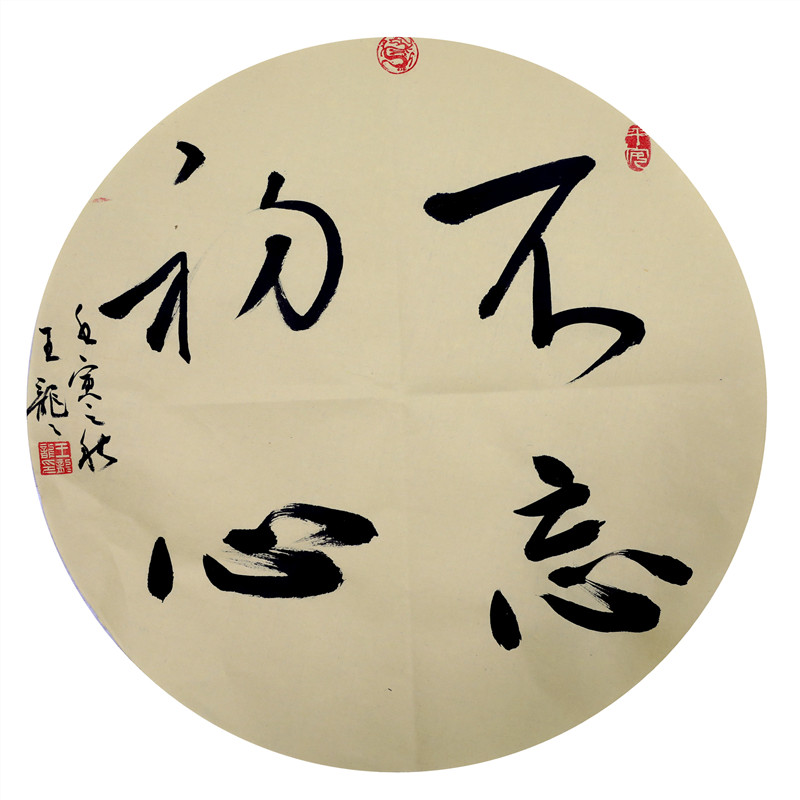 不忘
初心
壬寅之秋
王龍